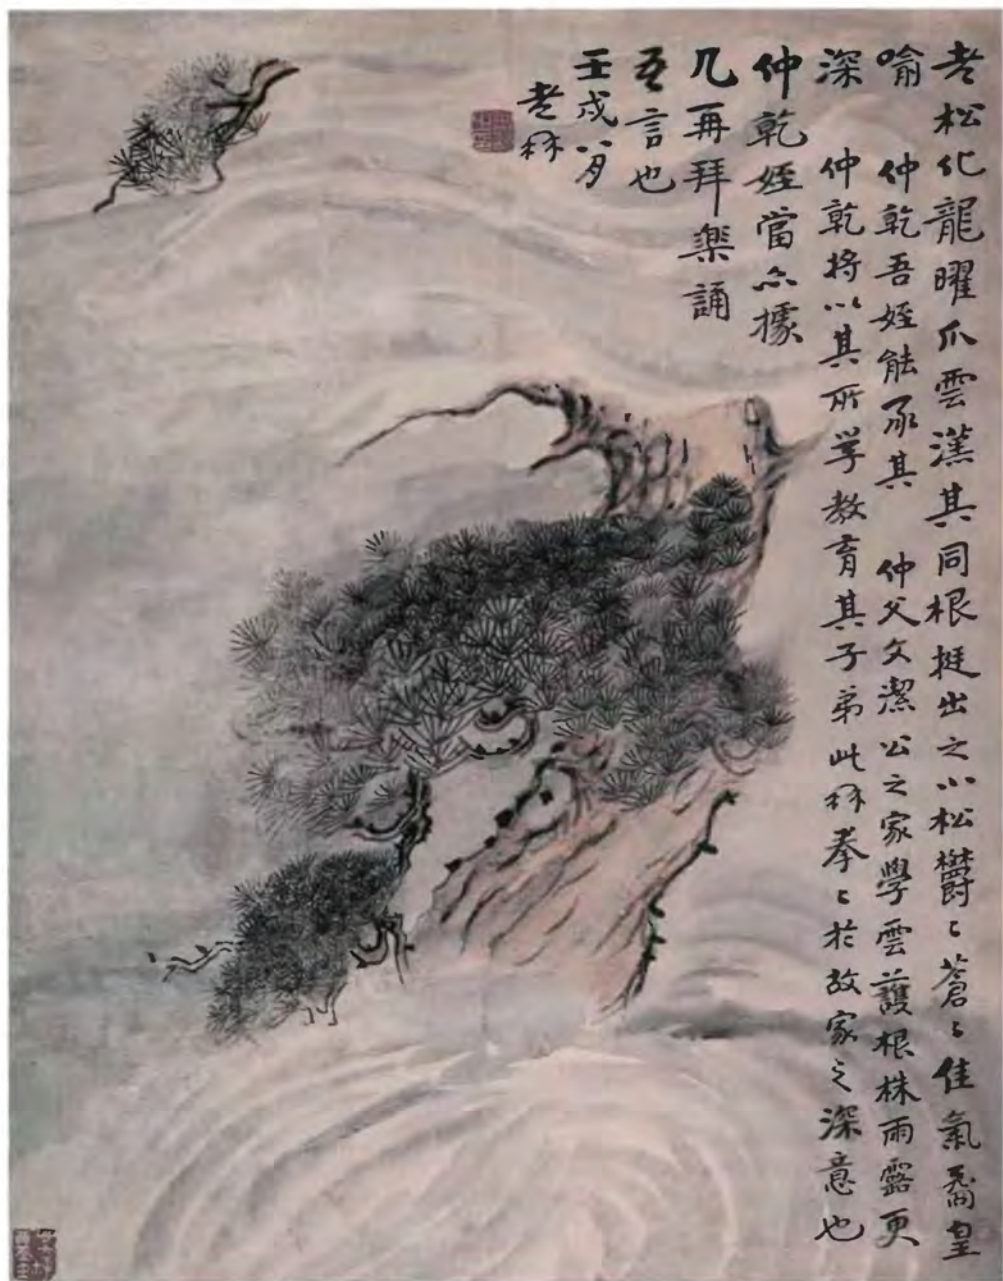 老松化龍曜爪雲漢其同根挺出之小松鬱々蒼々佳氣矞皇
喻 仲乾吾姪能承其 仲父文潔公之家學雲護根株雨露更
深 仲乾將以其所学教育其子弟此栎拳々於故家之深意也
仲乾姪當亦據
几再拜樂誦
吾言也
壬戌八月
老栎